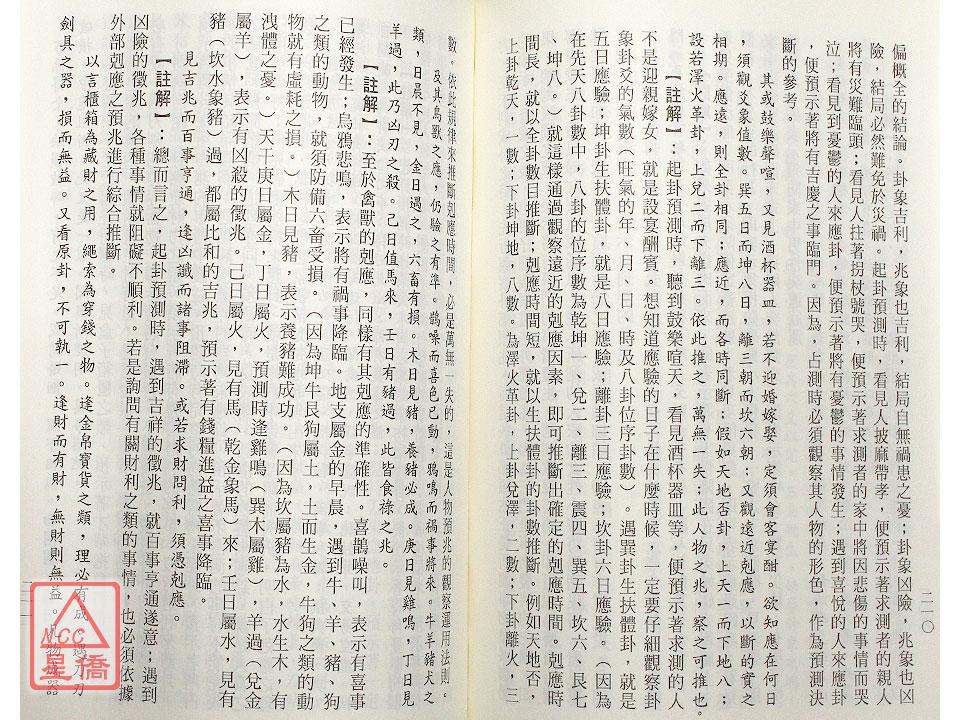 二一〇
偏概全的結論。卦象吉利，兆象也吉利，結局自無禍患之憂；卦象凶險，兆象也凶
險，結局必然難免於災禍。起卦預測時，看見人披麻帶孝，便預示著求測者的親人
將有災難臨頭；看見人拄著拐杖號哭，便預示著求測者的家中將因悲傷的事情而哭
泣；看見到憂鬱的人來應卦，便預示著將有憂鬱的事情發生；遇到喜悅的人來應卦
，便預示著將有吉慶之事臨門。因為，占測時必須觀察其人物的形色，作為預測決
斷的參考。
其或鼓樂聲喧，又見酒杯器皿，若不迎婚嫁娶，定須會客宴酣。欲知應在何日
，須觀爻象值數。巽五日而坤八日，離三朝而坎六朝；又觀遠近剋應，以斷的實之
相期。應遠，則全卦相同；應近，而各時同斷；假如天地否卦，上天一而下地八；
設若澤火革卦，上兌二而下離三。依此推之，萬無一失；此人物之兆，察之可推也。
【註解】：起卦預測時，聽到鼓樂喧天，看見酒杯器皿等，便預示著求測的人
不是迎親嫁女，就是設宴酬賓。想知道應驗的日子在什麼時候，一定要仔細觀察卦
象卦爻的氣數（旺氣的年、月、日、時及八卦位序卦數）。遇巽卦生扶體卦，就是
五日應驗；坤卦生扶體卦，就是八日應驗；離卦三日應驗；坎卦六日應驗。（因為
在先天八卦數中，八卦的位序數為乾一、兌二、離三、震四、巽五、坎六、艮七
、坤八。）就這樣通過觀察遠近的剋應因素，即可推斷出確定的剋應時間。剋應時
間長，就以全卦卦數目推斷；剋應時間短，就以生扶體卦的卦數推斷。例如天地否，
上卦乾天，一數；下卦坤地，八數。為澤火革卦，上卦兌澤，二數；下卦離火，三
數。依此規律來推斷剋應時間，必是萬無一失的，這是人物預兆的觀察運用法則。
及其為獸之應，仍驗之有準。鵲噪而喜色已動，鴉鳴而禍事將來。牛羊豬犬之
類，日晨不見，金日遇之，六畜有損。木日見豬，養豬必成。庚日見雞鳴，丁日見
羊過，此乃凶刃之殺。己日值馬來，壬日有豬過，此皆食祿之兆。
【註解】：至於禽獸的剋應，同樣有其剋應的準確性。喜鵲噪叫，表示有喜事
已經發生；烏鴉悲鳴，表示將有禍事降臨。地支屬金的早晨，遇到牛、羊、豬、狗
之類的動物，就須防備六畜受損。（因為坤牛艮狗屬土，土而生金，牛狗之類的動
物就有虛耗之損。）木日見豬，表示養豬難成功。（因為坎屬豬為水，水生木，有
洩體之憂。）天干庚日屬金，丁日屬火，預測時逢雞鳴（巽木屬雞），羊過（兌金
屬羊），表示有凶殺的徵兆。己日屬火，見有馬（乾金象馬）來；壬日屬水，見有
豬（坎水象豬）過，都屬比和的吉兆，預示著有錢糧進益之喜事降臨。
見吉兆而百事亨通，逢凶讖而諸事阻滯。或若求財問利，須憑剋應。
【註解】：總而言之，起卦預測時，遇到吉祥的徵兆，就百事亨通遂意；遇到
凶險的徵兆，各種事情就阻礙不順利。若是詢問有關財利之類的事情，也必須依據
外部剋應之預兆進行綜合推斷。
以言櫃箱為藏財之用，繩索為穿錢之物。逢金帛寶貨之類，理必有成；遇刀刃
劍具之器，損而無益。又看原卦，不可執一。逢財而有財，無財則無益。凡物成器
二一一
NCC
星僑